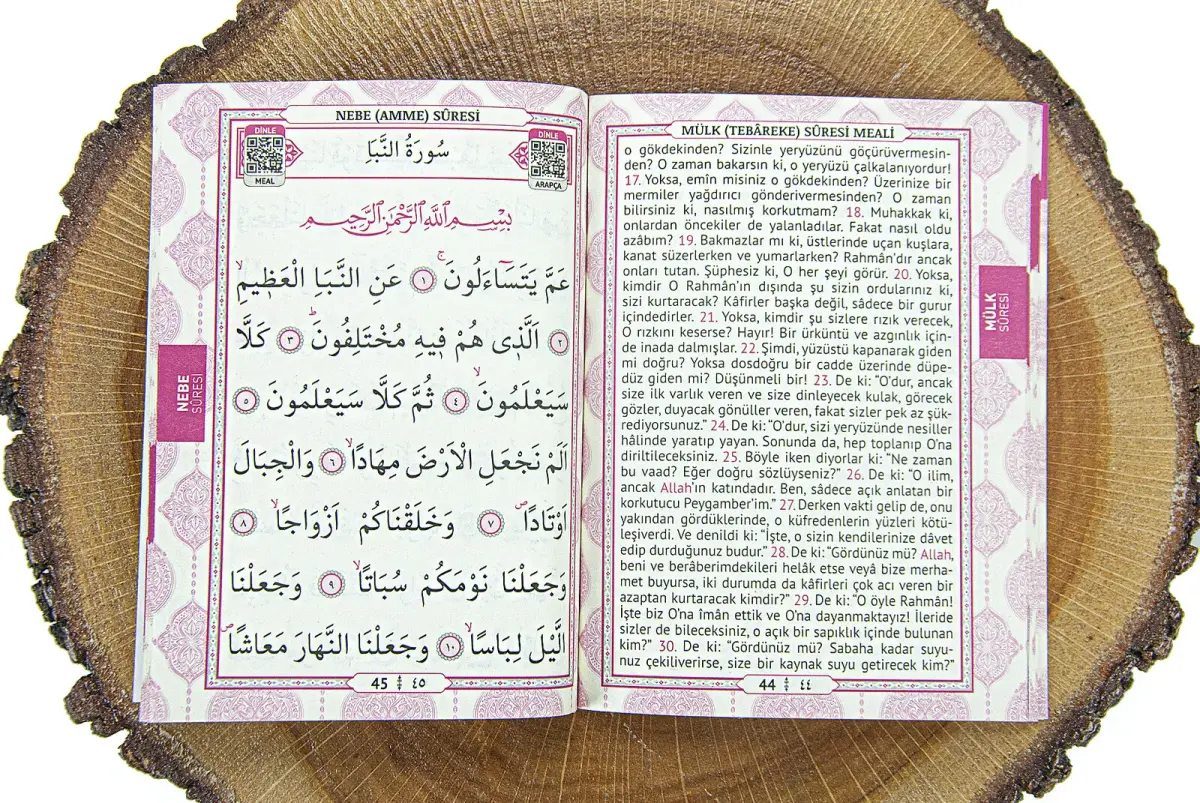 MÜLK (TEBÂREKE) SÛRESİ MEALİ
o gökdekinden? Sizinle yeryüzünü göçürüvermesin-
den? O zaman bakarsın ki, o yeryüzü çalkalanıyordur!
17. Yoksa, emîn misiniz o gökdekinden? Üzerinize bir
mermiler yağdırıcı gönderivermesinden? O zaman
bilirsiniz ki, nasılmış korkutmam? 18. Muhakkak ki,
onlardan öncekiler de yalanladılar. Fakat nasıl oldu
azâbım? 19. Bakmazlar mı ki, üstlerinde uçan kuşlara,
kanat süzerlerken ve yumarlarken? Rahmân'dır ancak
onları tutan. Şüphesiz ki, O her şeyi görür. 20. Yoksa,
kimdir O Rahmân'ın dışında şu sizin ordularınız ki,
sizi kurtaracak? Kâfirler başka değil, sâdece bir gurur
içindedirler. 21. Yoksa, kimdir şu sizlere rızık verecek,
O rızkını keserse? Hayır! Bir ürküntü ve azgınlık için-
de inada dalmışlar. 22. Şimdi, yüzüstü kapanarak giden
mi doğru? Yoksa dosdoğru bir cadde üzerinde düpe-
düz giden mi? Düşünmeli bir! 23. De ki: “O'dur, ancak
size ilk varlık veren ve size dinleyecek kulak, görecek
gözler, duyacak gönüller veren, fakat sizler pek az şük-
rediyorsunuz.” 24. De ki: “O'dur, sizi yeryüzünde nesiller
hâlinde yaratıp yayan. Sonunda da, hep toplanıp O'na
diriltileceksiniz. 25. Böyle iken diyorlar ki: “Ne zaman
bu vaad? Eğer doğru sözlüyseniz?” 26. De ki: “O ilim,
ancak Allah'ın katındadır. Ben, sâdece açık anlatan bir
korkutucu Peygamber'im.” 27. Derken vakti gelip de, onu
yakından gördüklerinde, o küfredenlerin yüzleri kötü-
leşiverdi. Ve denildi ki: “İşte, o sizin kendilerinize dâvet
edip durduğunuz budur.” 28. De ki: “Gördünüz mü? Allah,
beni ve berâberimdekileri helâk etse veyâ bize merha-
met buyursa, iki durumda da kâfirleri çok acı veren bir
azaptan kurtaracak kimdir?” 29. De ki: “O öyle Rahmân!
İşte biz O'na îmân ettik ve O'na dayanmaktayız! İleride
sizler de bileceksiniz, o açık bir sapıklık içinde bulunan
kim?” 30. De ki: “Gördünüz mü? Sabaha kadar suyu-
nuz çekiliverirse, size bir kaynak suyu getirecek kim?”
44 ٤٤
MÜLK
SÛRESİ
NEBE (AMME) SÛRESİ
DİNLE
ARAPÇA
سُورَةُ النَّبَاِ
DİNLE
MEAL
بِسْمِ اللّٰهِ الرَّحْمٰنِ الرَّحِيمِ
عَمَّ يَتَسَٓاءَلُونَۚ ﴿١﴾ عَنِ النَّبَاِ الْعَظٖيمِۙ
﴿٢﴾ اَلَّذٖى هُمْ فٖيهِ مُخْتَلِفُونَؕ ﴿٣﴾ كَلَّا
سَيَعْلَمُونَۙ ﴿٤﴾ ثُمَّ كَلَّا سَيَعْلَمُونَ ﴿٥﴾
اَلَمْ نَجْعَلِ الْاَرْضَ مِهَادًاۙ ﴿٦﴾ وَالْجِبَالَ
اَوْتَادًاۖ ﴿٧﴾ وَخَلَقْنَاكُمْ اَزْوَاجًاۙ ﴿٨﴾
وَجَعَلْنَا نَوْمَكُمْ سُبَاتًاۙ ﴿٩﴾ وَجَعَلْنَا
الَّيْلَ لِبَاسًاۙ ﴿١٠﴾ وَجَعَلْنَا النَّهَارَ مَعَاشًاۖ
45 ٤٥
NEBE
SÛRESİ